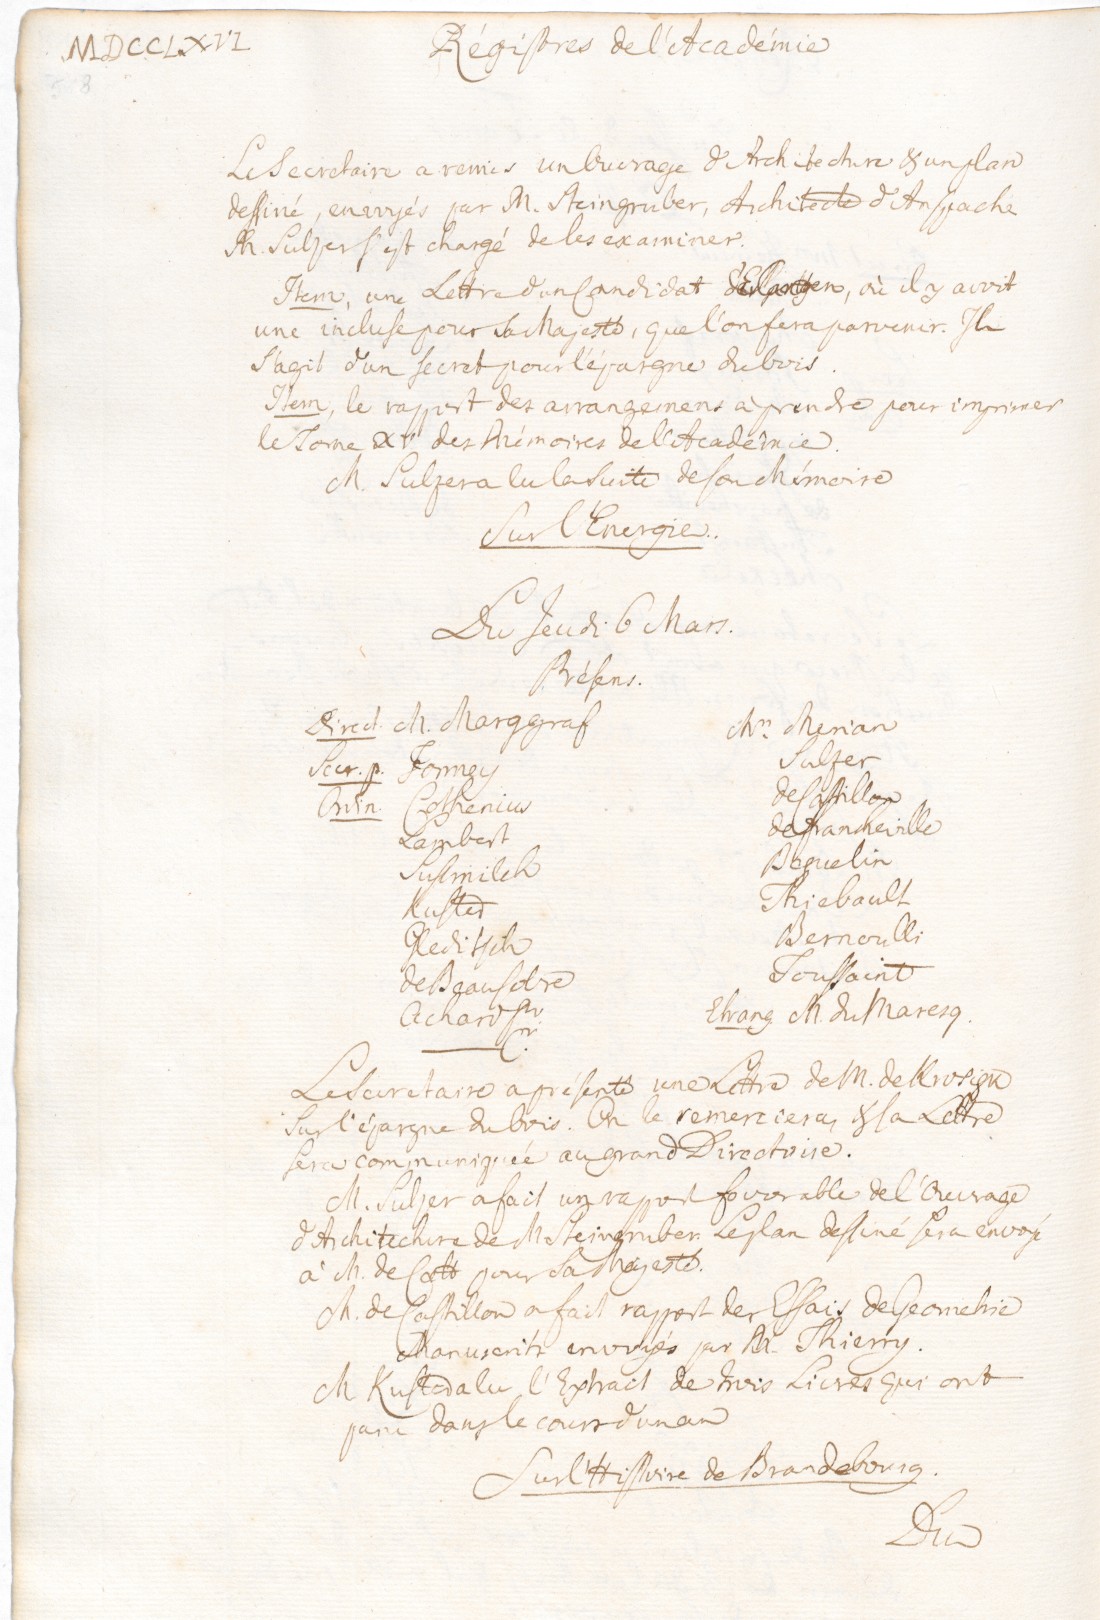 MDCCLXVI
Régistres de l'Académie
Le Secretaire a remis un Ouvrage d'Architecture & un plan
dessiné, envoyés par M. Steingruber, Architecte d'Anspach.
M. Sulzer s'est chargé de les examiner.
Item, une Lettre d'un Candidat d'Erlangen, où il y avoit
une incluse pour Sa Majesté, que l'on fera parvenir. Il
s'agit d'un secret pour l'épargne du bois.
Item, le rapport des arrangemens à prendre pour imprimer
le Tome XV des Mémoires de l'Académie.
M. Sulzer a lu la Suite de son Mémoire
Sur l'Energie.
Du Jeudi 6 Mars.
Présens.
Direct. M. Marggraf
Secr. p. Formey
Ordin. Cothenius
Lambert
Susmilch
Kuster
Gleditsch
de Beausobre
Achard Sr.
Mrs. Merian
Sulzer
de Castillon
de Francheville
Beguelin
Thiebault
Bernoulli
Toussaint
Etrang. M. du Maresq.
Le Secretaire a présenté une Lettre de M. de Krosigk
sur l'épargne du bois. On le remerciera, & sa Lettre
sera communiquée au grand Directoire.
M. Sulzer a fait un rapport favorable de l'Ouvrage
d'Architecture de M. Steingruber. Le plan dessiné sera envoyé
à M. de Catt pour Sa Majesté.
M. de Castillon a fait rapport des Essais de Geometrie
Manuscrits envoyés par M. Thierry.
M. Kuster a lu l'Extrait de trois Livres qui ont
paru dans le cours d'un an
Sur l'Histoire de Brandebourg.
Du